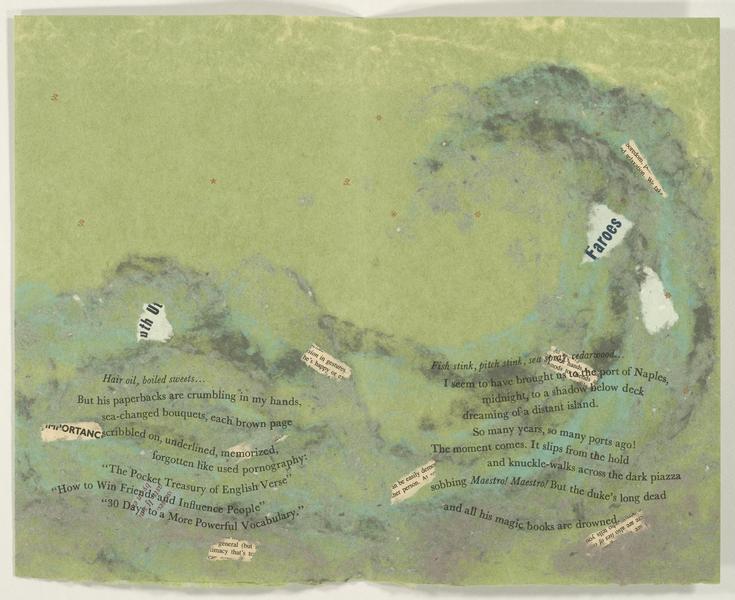 Faroes
uth Ut
Hair oil, boiled sweets…
But his paperbacks are crumbling in my hands,
sea-changed bouquets, each brown page
scribbled on, underlined, memorized,
forgotten like used pornography:
"The Pocket Treasury of English Verse"
"How to Win Friends and Influence People"
"30 Days to a More Powerful Vocabulary."
IMPORTANC
general (but
timacy that's to
sion in gestures
he's happy or
Fish stink, pitch stink, sea spray, cedarwood…
I seem to have brought us to the port of Naples,
midnight, to a shadow below deck
dreaming of a distant island.
So many years, so many ports ago!
The moment comes. It slips from the hold
and knuckle-walks across the dark piazza
sobbing Maestro! Maestro! But the duke's long dead
and all his magic books are drowned.
an be easily demo
her person.